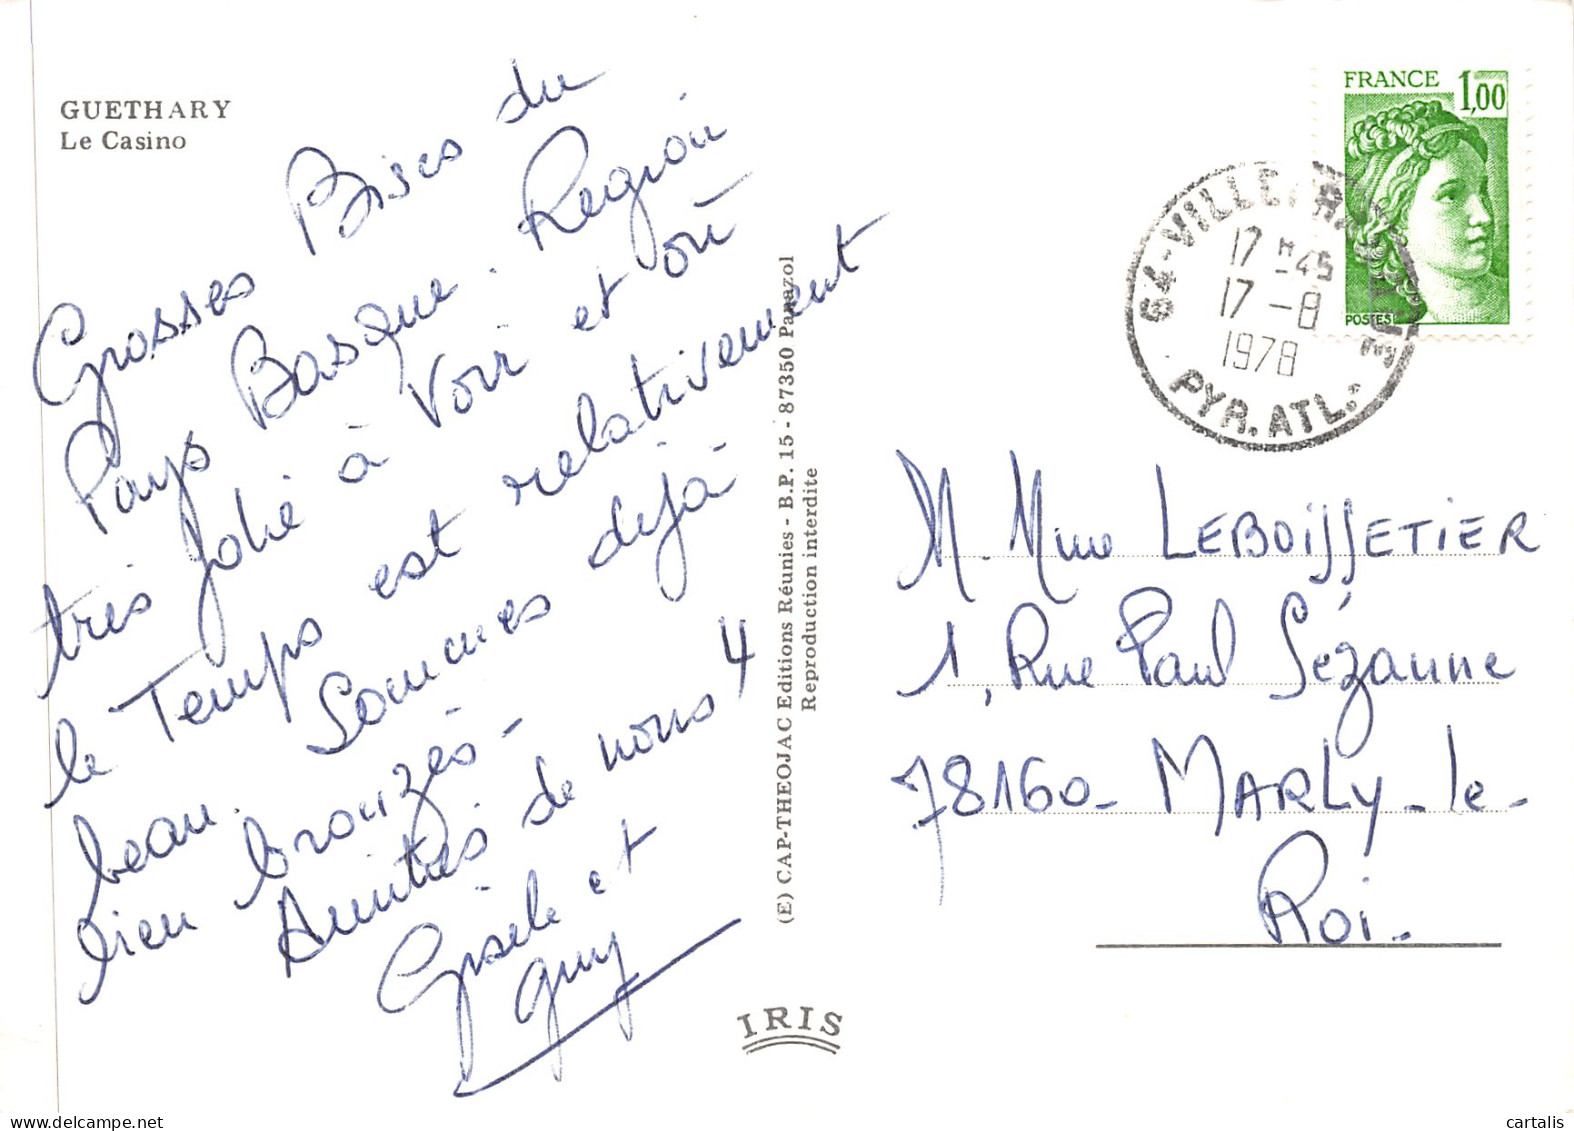 GUETHARY
Le Casino
Grosses Bises du
Pays Basque. Region
très jolie à voir et où
le Temps est relativement
beau. Sommes déjà
bien bronzés -
Amitiés de nous 4
Gisèle et
guy
(E) CAP-THEOJAC Editions Réunies - B.P. 15 - 87350 Panazol
Reproduction interdite
IRIS
FRANCE 1,00
POSTES
64-VILLEFRANQUE
17 H 45
17 -8
1978
PYR. ATL.
M. Mme LEBOISSETIER
1, Rue Paul Sézanne
78160 - MARLY-le-
Roi.
cartalis
delcampe.net